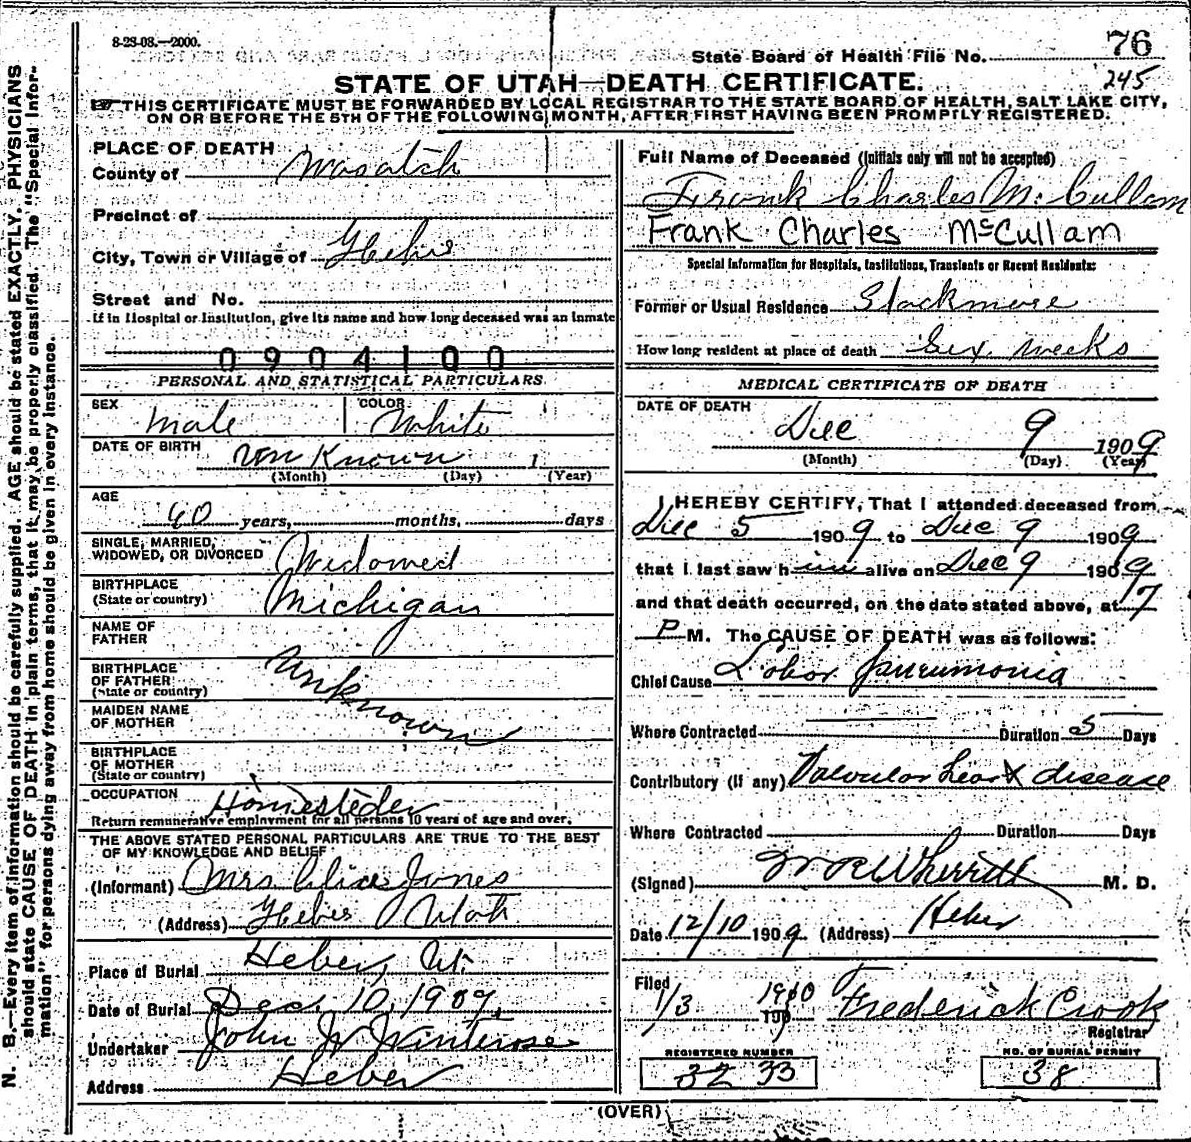 8-28-08.—2000.
State Board of Health File No. 76
245
STATE OF UTAH—DEATH CERTIFICATE.
THIS CERTIFICATE MUST BE FORWARDED BY LOCAL REGISTRAR TO THE STATE BOARD OF HEALTH, SALT LAKE CITY,
ON OR BEFORE THE 5TH OF THE FOLLOWING MONTH, AFTER FIRST HAVING BEEN PROMPTLY REGISTERED.
N. B.—Every item of information should be carefully supplied. AGE should be stated EXACTLY. PHYSICIANS
should state CAUSE OF DEATH in plain terms, that it may be properly classified. The "Special Infor-
mation" for persons dying away from home should be given in every instance.
PLACE OF DEATH
County of Wasatch
Precinct of
City, Town or Village of Heber
Street and No.
If in Hospital or Institution, give its name and how long deceased was an inmate
0904100
PERSONAL AND STATISTICAL PARTICULARS
SEX COLOR
Male White
DATE OF BIRTH Un Known 1
(Month) (Day) (Year)
AGE
60 years, months, days
SINGLE, MARRIED,
WIDOWED, OR DIVORCED Widowed
BIRTHPLACE
(State or country) Michigan
NAME OF
FATHER
BIRTHPLACE
OF FATHER
(State or country)
Unknown
MAIDEN NAME
OF MOTHER
BIRTHPLACE
OF MOTHER
(State or country)
OCCUPATION Homesteder
Return remunerative employment for all persons 10 years of age and over.
THE ABOVE STATED PERSONAL PARTICULARS ARE TRUE TO THE BEST
OF MY KNOWLEDGE AND BELIEF
(Informant) Mrs Jones
(Address) Heber Utah
Place of Burial Heber, Ut.
Date of Burial Dec. 10, 1909,
Undertaker John W Winterose
Address Heber
Full Name of Deceased (Initials only will not be accepted)
Frank Charles McCullam
Frank Charles McCullam
Special Information for Hospitals, Institutions, Transients or Recent Residents:
Former or Usual Residence Stockmore
How long resident at place of death Six weeks
MEDICAL CERTIFICATE OF DEATH
DATE OF DEATH
Dec 9 1909
(Month) (Day) (Year)
I HEREBY CERTIFY, That I attended deceased from
Dec 5 1909 to Dec 9 1909
that I last saw him alive on Dec 9 1909
and that death occurred, on the date stated above, at 7
P M. The CAUSE OF DEATH was as follows:
Chief Cause Lobar pneumonia
Where Contracted Duration 5 Days
Contributory (if any) Valvular heart disease
Where Contracted Duration Days
(Signed) Wherritt M. D.
Date 12/10 1909 (Address) Heber
Filed
1/3 1910 Frederick Crook
190
Registrar
REGISTERED NUMBER NO. OF BURIAL PERMIT
32 33 38
(OVER)